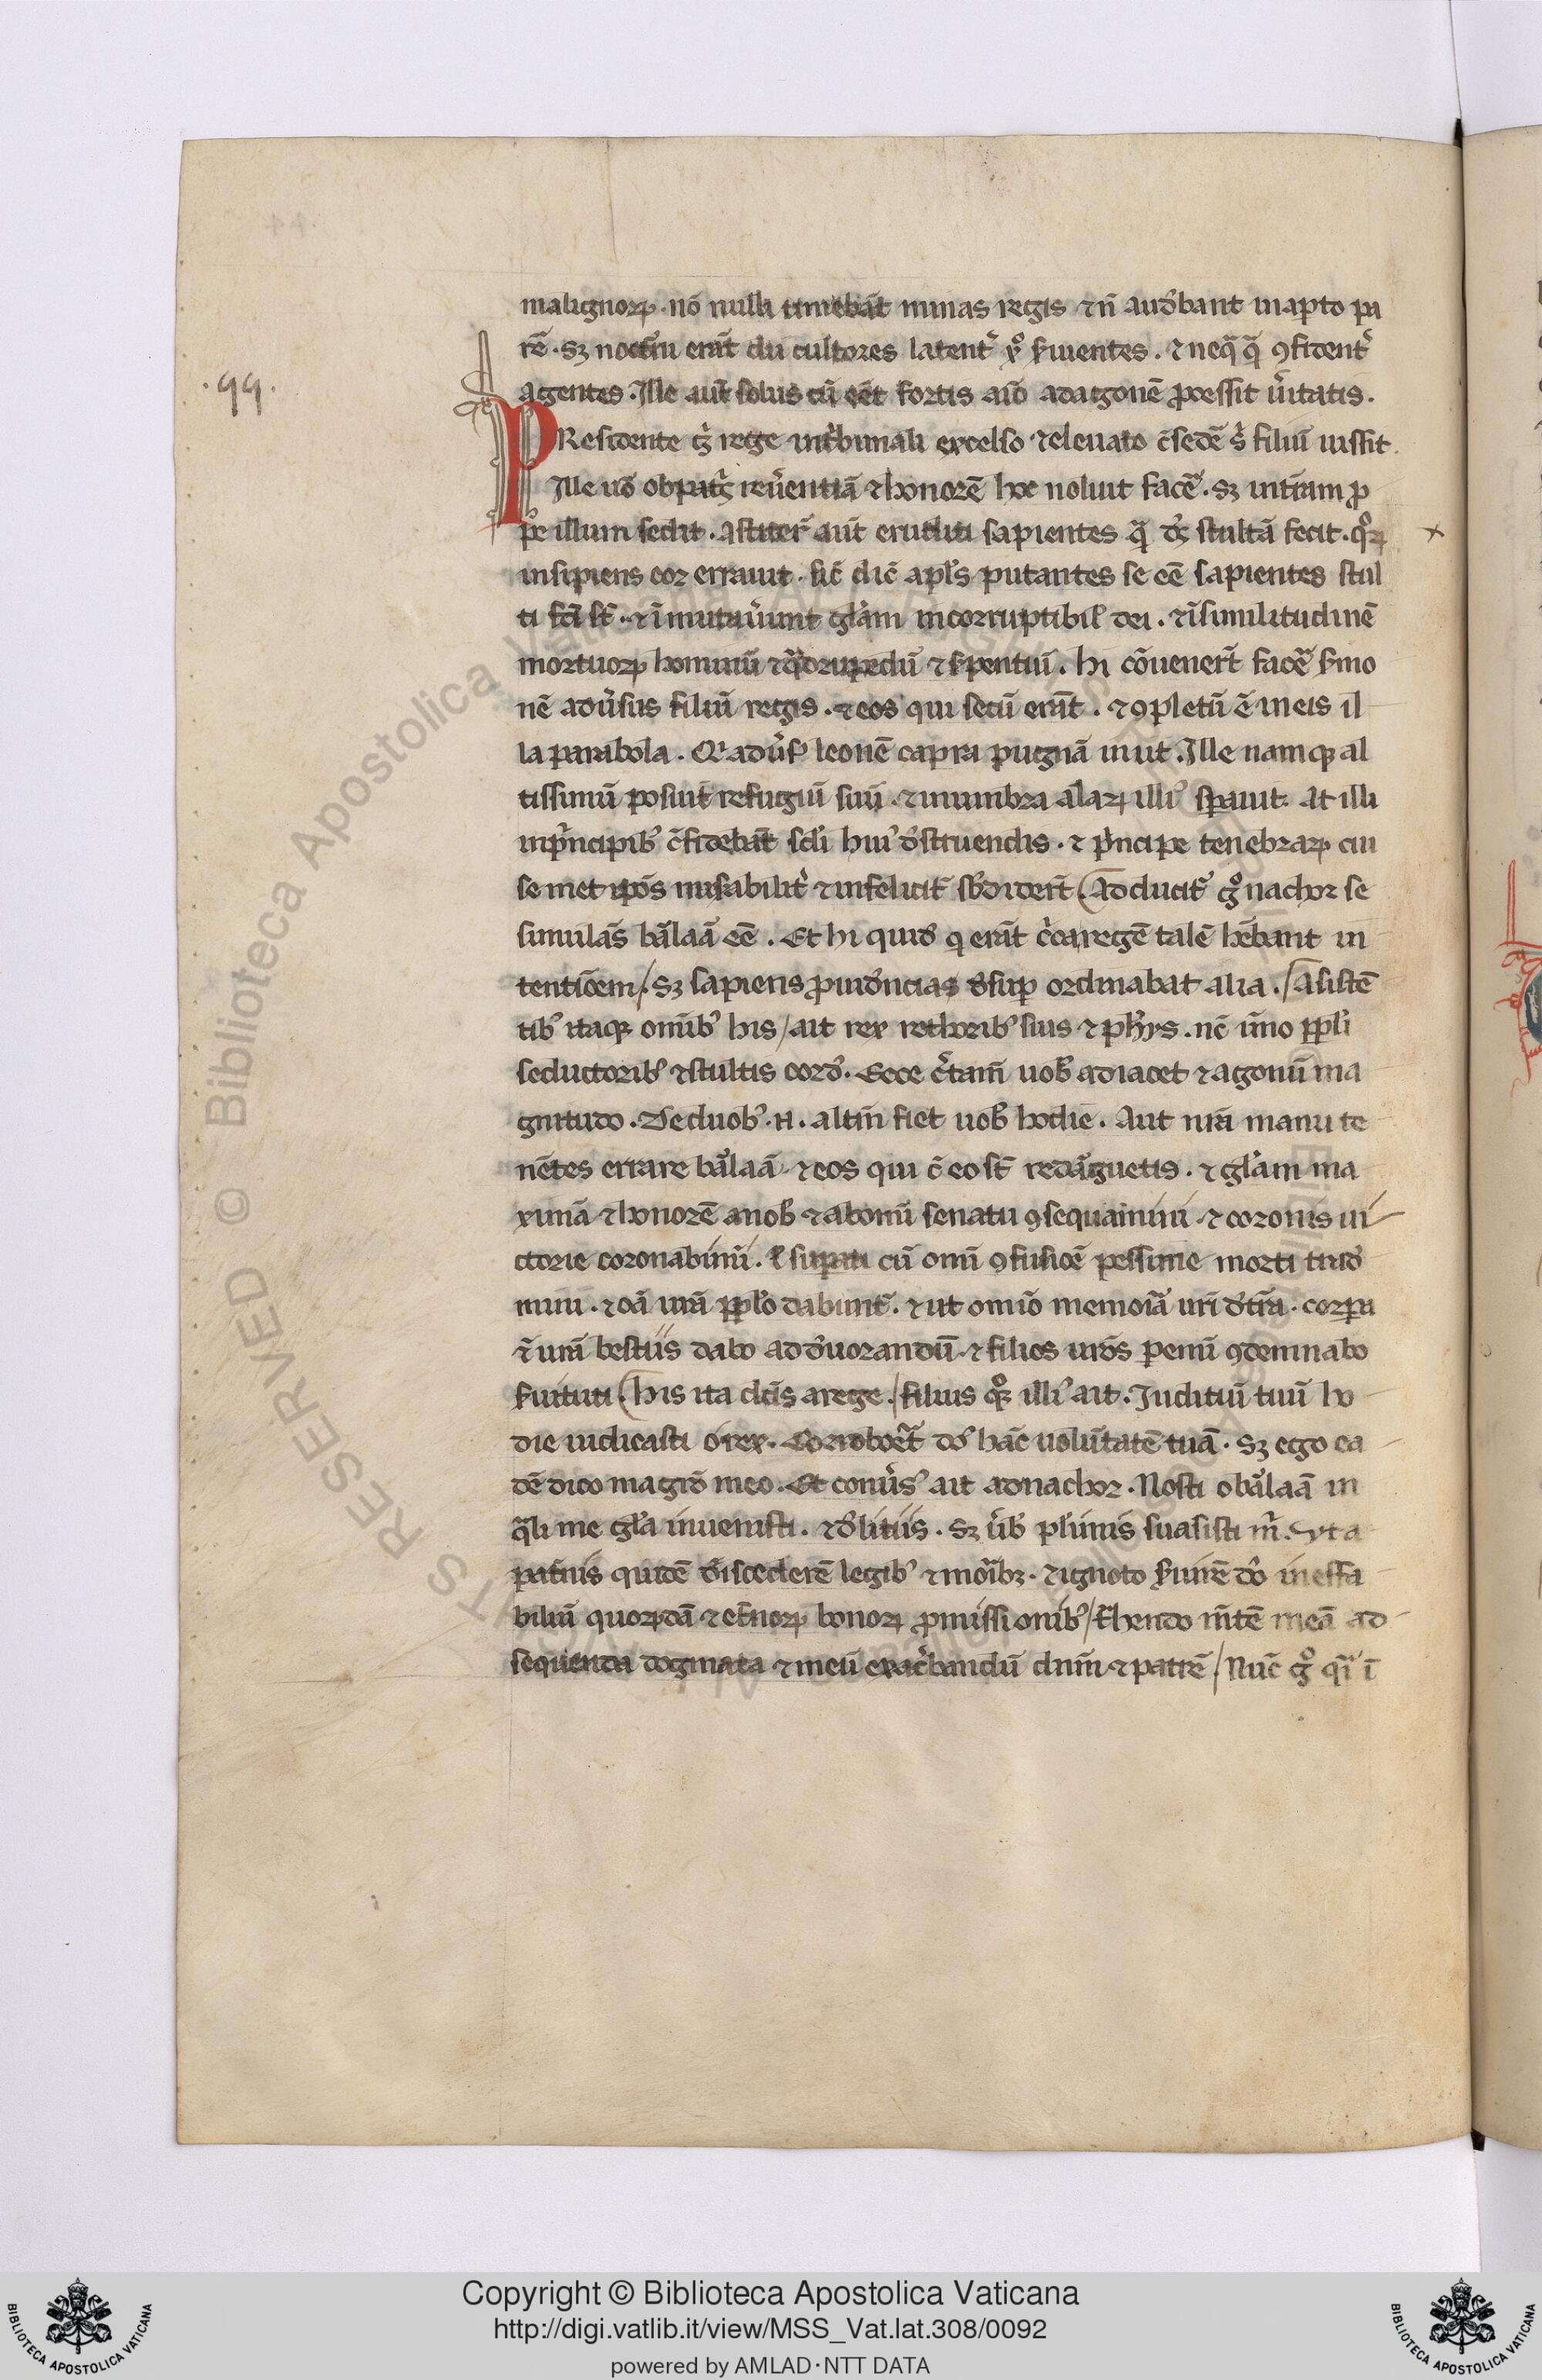 .99.
malignoꝝ. nō nulli timebāt minas regis ⁊ n̄ aud̓bant inapto pa
rē. sꝫ noctͥu erāt diu cultores latent̓ xͦ s̓uientes. ⁊ neq̄q̄ ꝯfident̓
agentes. Ille aut̄ solus cū eēt fortis aīo adagonē ꝓcessit ũitatis.
PResidente g̓ rege int̓bunali excelso ⁊eleuato c̄sedē s̓ filiū iussit.
Ille ũo obpat̓s reũentiā ⁊honorē hoc noluit facē. sꝫ int̓ram ꝓ
pe illum sedit. Astiter̄ aut̄ eruditi sapientes q̄ ds̓ stultā fecit. qͦꝝ
insipiens cor errauit. sic̄ dic̄ apl̓s putantes se eē sapientes stul
ti fc̄i st̄. ⁊ īmutaũunt gl̓am incorruptibil̓ dei. ⁊ īsimilitudinē
mortuoꝝ hominū ⁊q̄drupedū ⁊s̓pentiū. hi cōuenert̄ facē s̓mo
nē adũsus filiū regis. ⁊eos qui secū erāt. ⁊ꝯpletū ē ineis il
la parabola. Qꝛ adũs̓ leonē capra pugnā iniit. Ille namqꝫ al
tissimū posuit refugiū suū. ⁊inumbra alaꝝ illi᾿ sꝑauit. At illi
inp̓ncipib᾿ c̄fidebāt scl̓i hui᾿ d̓struendis. ⁊ p̓ncipe tenebraꝝ cui
se met ip̄os mis̓abilit̓ ⁊infelicit̓ sb̓didert̄. Aducit᾿ gͦ nachor se
simulās bālaā eē. Et hi quid̓ q erāt c̓caregē talē hēbant in
tentiōem/. sꝫ sapiens ꝓuid̓ncias d̓suꝑ ordinabat alia./Asistē
tib᾿ itaqꝫ omīb᾿ his/ait rex rethorib᾿ suis ⁊ ph̓ys. nc̄ īmo ppl̓i
seductorib᾿ ⁊stultis cord̓. Ecce c̓tam̄ uob̓ adiacet ⁊agonū ma
gnitudo. Deduob᾿. n̄. altm̄ fiet uob̓ hodie. Aut nr̄a manu te
nētes errare bālaā ⁊eos qui c̄ eo st̄ redāguetis. ⁊ gl̓am ma
ximā ⁊honorē anob̓ ⁊abomī senatu ꝯsequaimini ⁊ coronis ui
ctorie coronabimī. l̓ suꝑati cū omī ꝯfusiōe pessime morti trad̓
mini. ⁊oā ur̄a ppl̓o dabunt̄. ⁊ ut omīo memoīa uri d̓t̓ra. corpa
⁊ur̄a bestiis dabo add̓uorandū ⁊filios ur̄os ꝑenni ꝯdemnabo
s̓uituti. his ita dcīs arege./filius qͦꝫ illi᾿ ait. Juditiū tuū ho
die iudicasti o rex. Corroboet̄ ds̓ hāc uolūtatē tuā. sꝫ ego ea
dē dico magrō meo. Et conũs᾿ ait adnachor. Nosti o bālaā in
q̄li me gl̓a inuenisti. ⁊d̓litiis. sꝫ ũb̓ plīmis suasisti m̓. Vt a
pat̓nis quidē d̓iscederē legib᾿ ⁊moīb;. ⁊ignoto s̓uirē dō ineffa
biliū quoꝝdā ⁊et̓noꝝ bonoꝝ ꝓmissionib᾿/t̓hendo m̄tē meā ad
sequenda dogmata ⁊meū exac̓bandū dnm̄ ⁊patrē/Nūc gͦ q̄i ī
Copyright © Biblioteca Apostolica Vaticana
http://digi.vatlib.it/view/MSS_Vat.lat.308/0092
powered by AMLAD·NTT DATA
BIBLIOTECA APOSTOLICA VATICANA
BIBLIOTECA APOSTOLICA VATICANA